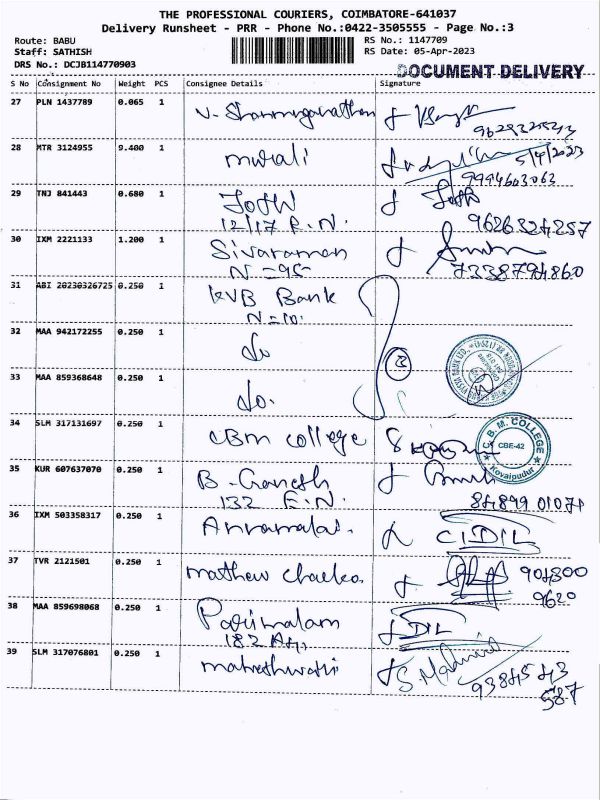 THE PROFESSIONAL COURIERS, COIMBATORE-641037
Delivery Runsheet - PRR - Phone No.:0422-3505555 - Page No.:3
Route: BABU RS No.: 1147709
Staff: SATHISH RS Date: 05-Apr-2023
DRS No.: DCJB114770903
DOCUMENT DELIVERY
S No Consignment No Weight PCS Consignee Details Signature
27 PLN 1437789 0.065 1
28 MTR 3124955 9.400 1 murali 5/4/2023
9994603063
29 TNJ 841443 0.680 1
12/17 E.N. 9626324257
30 IXM 2221133 1.200 1 Sivaraman
N-95 7338794860
31 ABI 20230326725 0.250 1 KVB Bank
N-10.
32 MAA 942172255 0.250 1 do
33 MAA 859368648 0.250 1 do.
34 SLM 317131697 0.250 1 CBM college
C.B.M. COLLEGE
CBE-42
Kovaipudur
35 KUR 607637070 0.250 1 B. Ganesh
132 E.N. 84899 01071
36 IXM 503358317 0.250 1 Annamalai.
37 TVR 2121501 0.250 1 mathew chacko 904800
9620
38 MAA 859698068 0.250 1 Parimalam
182
39 SLM 317076801 0.250 1 maheshwari
9384543
587